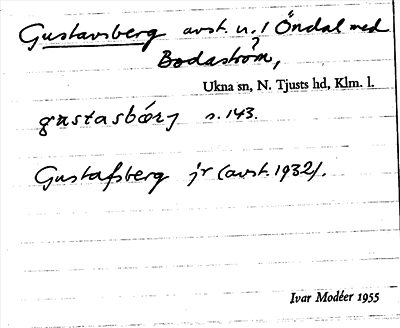 Gustavsberg avst. u. 1 Öndal med
Bodaström,
?
Ukna sn, N. Tjusts hd, Klm. l.
s. 143.
Gustafsberg jr (avst. 1932).
Ivar Modéer 1955